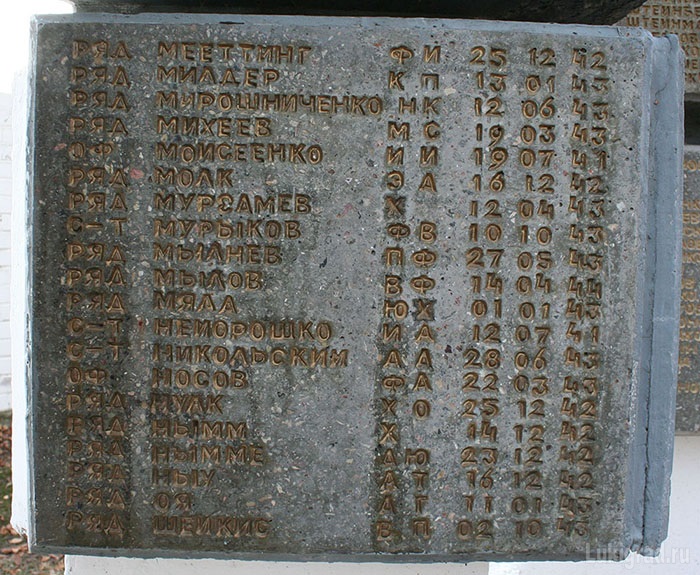 РЯД МЕЕТТИНГ Ф И 25 12 42
РЯД МИЛДЕР К П 13 01 43
РЯД МИРОШНИЧЕНКО Н К 12 06 43
РЯД МИХЕЕВ М С 19 03 43
ОФ МОИСЕЕНКО И И 19 07 41
РЯД МОЛК Э А 16 12 42
РЯД МУРЗАМЕВ Х 12 04 43
С-Т МУРЫКОВ Ф В 10 10 43
РЯД МЫЛНЕВ П Ф 27 05 43
РЯД МЫЛОВ В Ф 14 04 44
РЯД МЯЛА Ю Х 01 01 43
С-Т НЕЙОРОШКО И А 12 07 41
С-Т НИКОЛЬСКИЙ А А 28 06 43
ОФ НОСОВ Ф А 22 03 43
РЯД НУЛК Х О 25 12 42
РЯД НЫММ Х 14 12 42
РЯД НЫММЕ Д Ю 23 12 42
РЯД НЫУ А Т 16 12 42
РЯД ОЯ А Г 11 01 43
РЯД ШЕЙКИС Б П 02 10 43
ШТЕИН
ШТЕММ
Lukigrad.ru